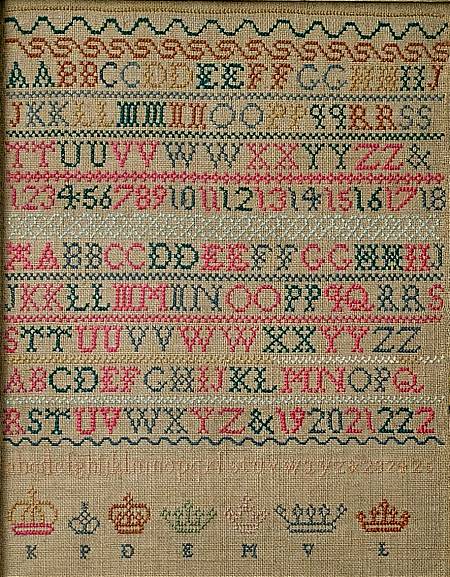 AABBCCDDEEFFGGHHIIJ
JKKLLMMNNOOPPqqRRSS
TTUUVVWWXXYYZZ&
123456789101112131415161718
AABBCCDDEEFFGGHHIIJ
JKKLLMMNNOOPPqQRRS
STTUUVVWWXXYYZZ
ABCDEFGHIJKLMNOPQ
RSTUVWXYZ&19202122 2
K P D E M V L